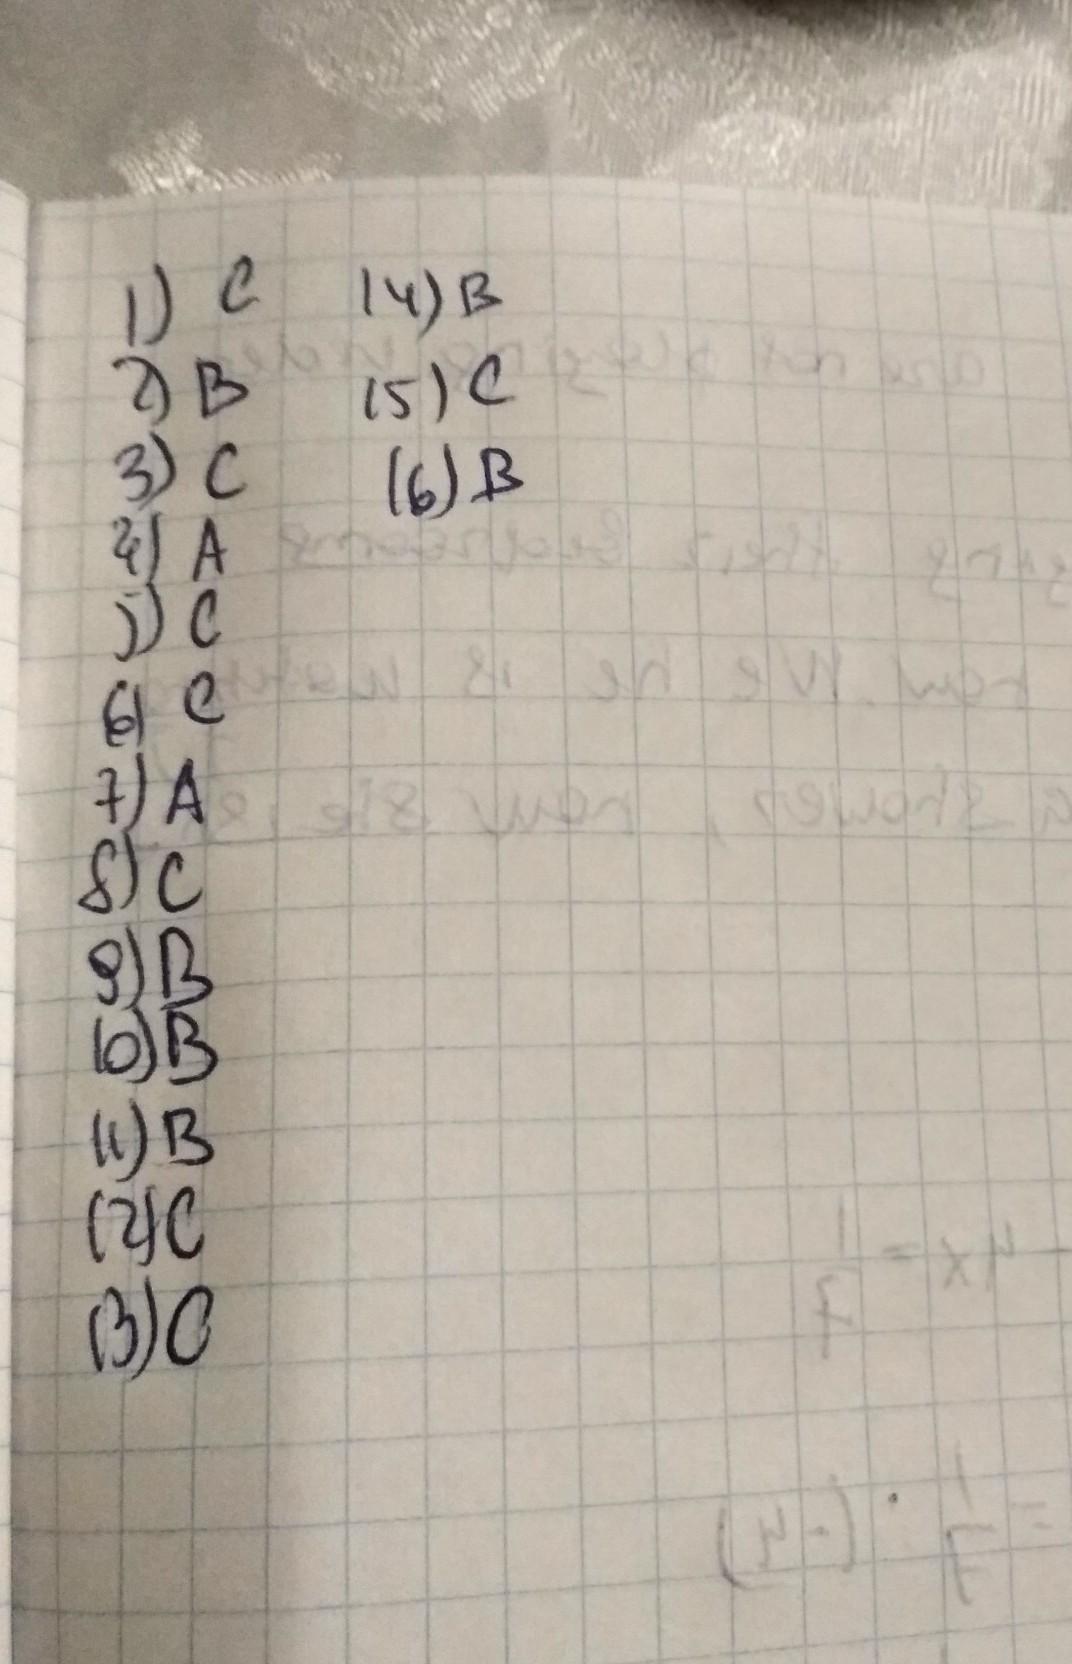 1) C
2) B
3) C
4) A
5) C
6) C
7) A
8) C
9) B
10) B
11) B
12) C
13) C
14) B
15) C
16) B